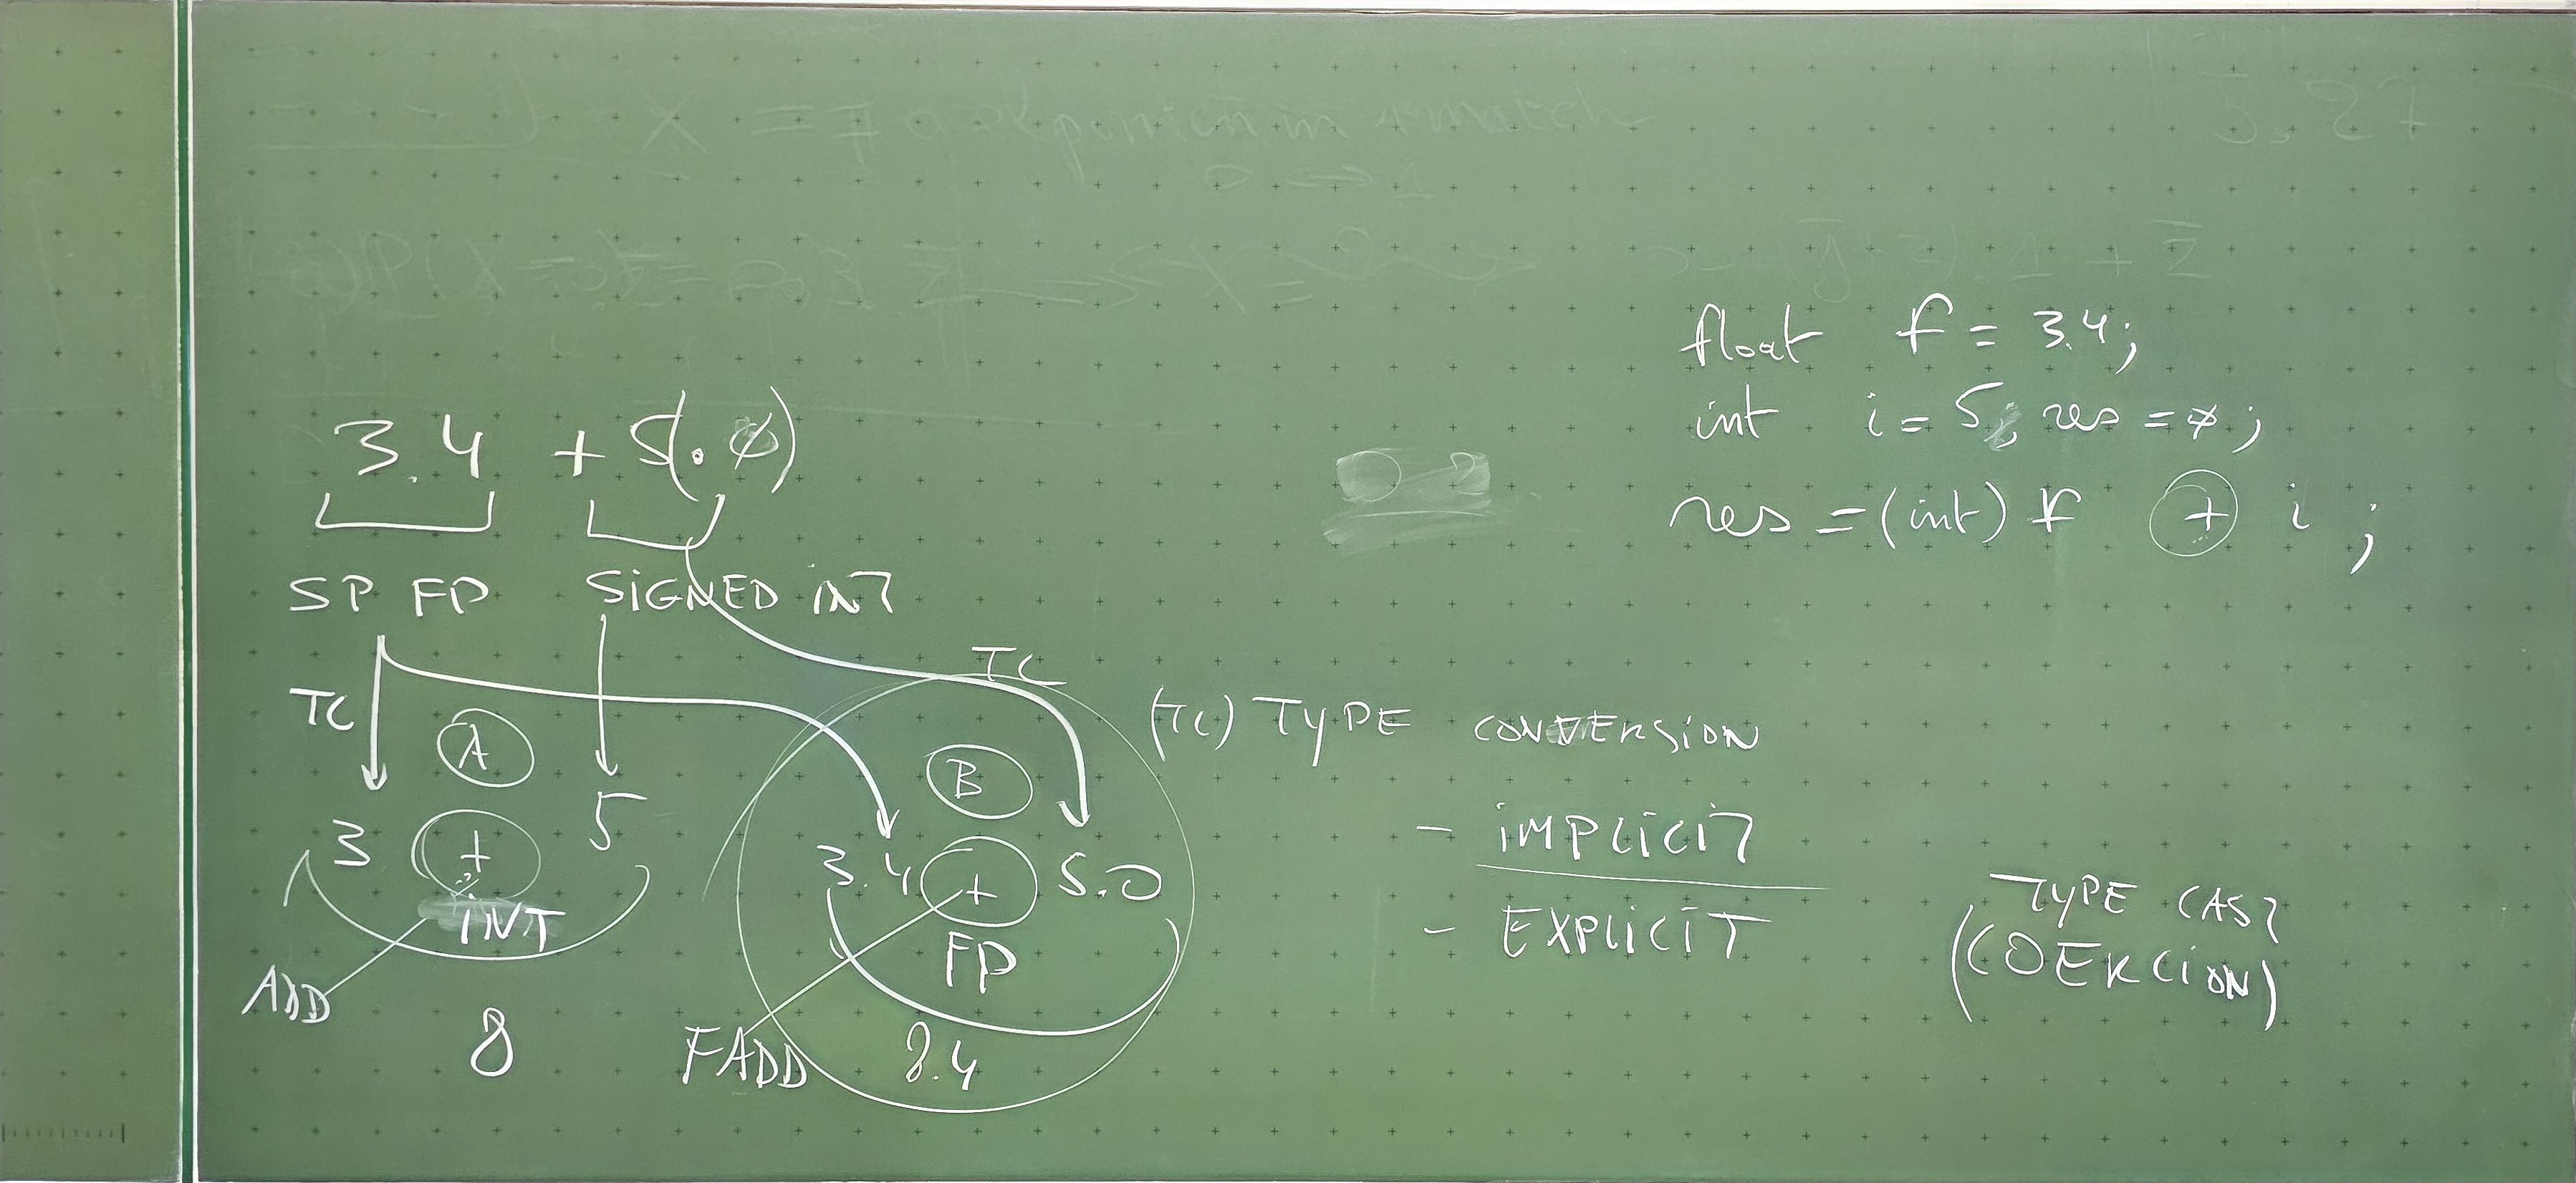 float f = 3.4;
int i = 5; res = 0;
res = (int) f + i ;
3.4 + 5(.0)
SP FP SIGNED INT
TC
TC
A
B
3 + 5
INT
ADD
8
3.4 + 5.0
FP
FADD
8.4
(TC) TYPE CONVERSION
- IMPLICIT
- EXPLICIT
TYPE CAST
(COERCION)